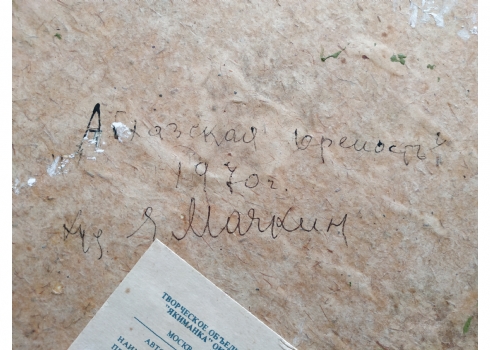 Абхазская крепость
1970г.
Худ Я Мачкин
ТВОРЧЕСКОЕ ОБЪЕД
"ЯКИМАНКА"
МОСКВ
АВТО
НАИМ